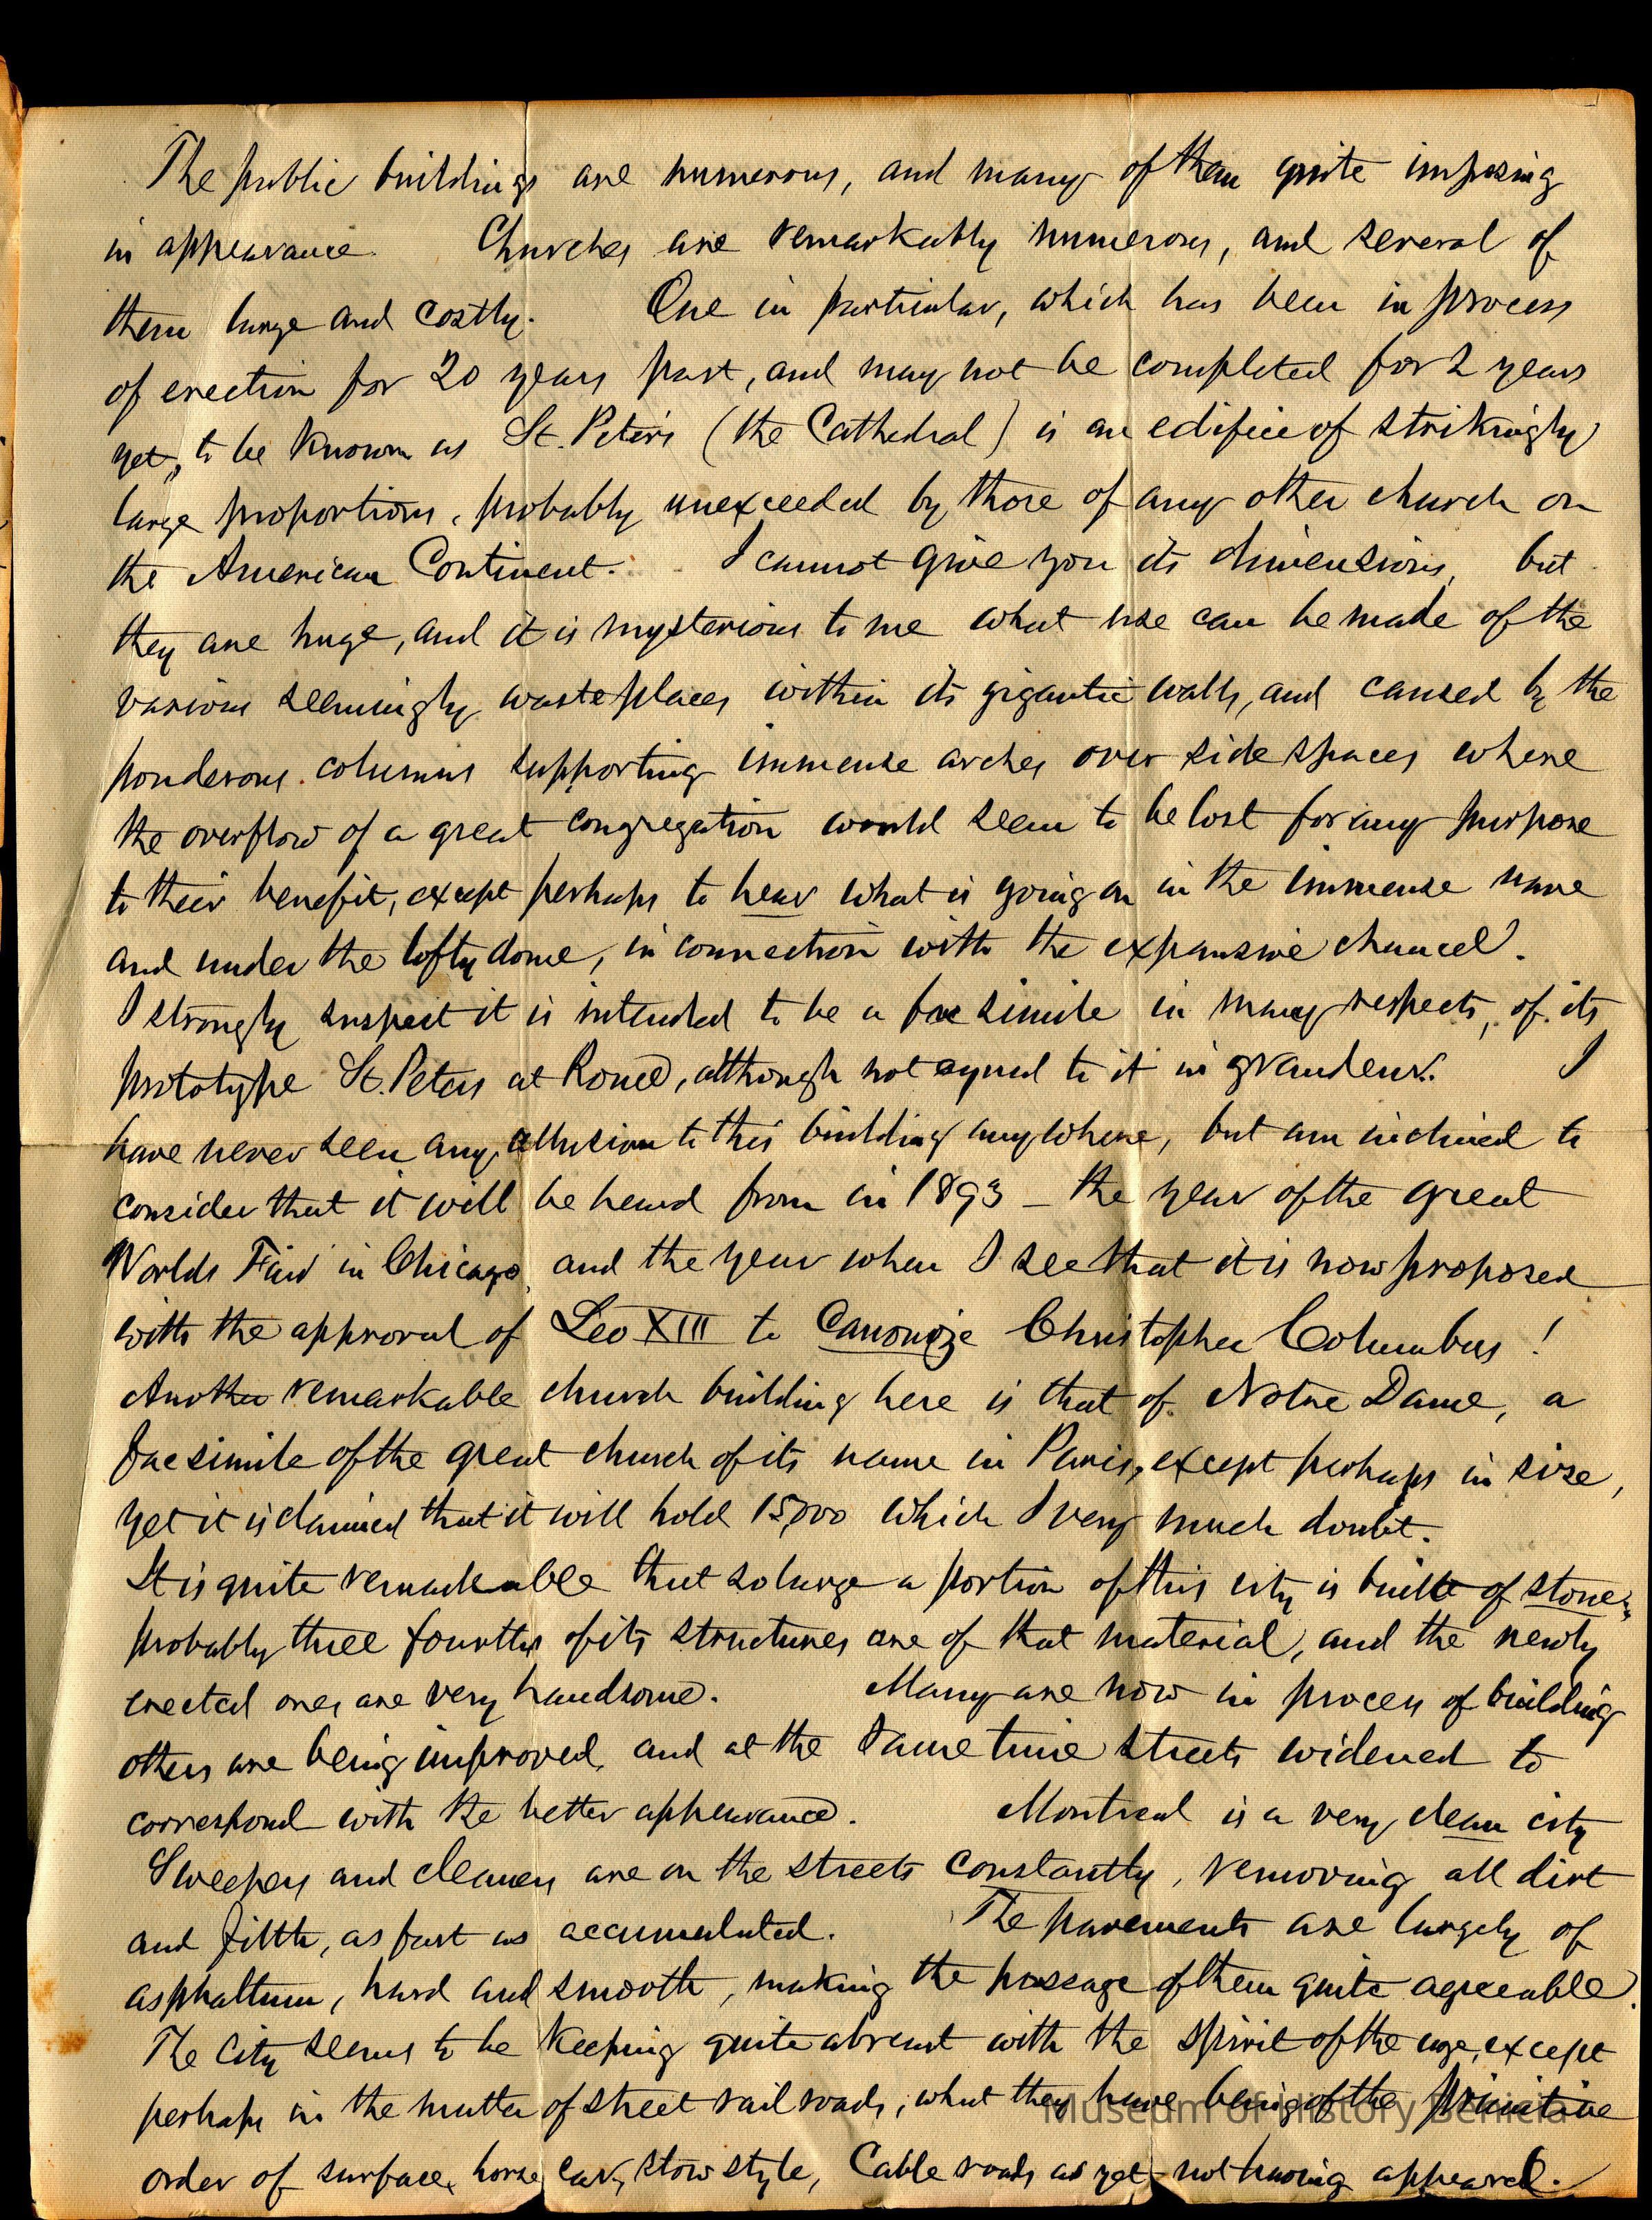 The public buildings are numerous, and many of them quite imposing
in appearance. Churches are remarkably numerous, and several of
them large and costly. One in particular, which has been in process
of erection for 20 years past, and may not be completed for 2 years
yet, to be known as St. Peter's (the Cathedral) is an edifice of strikingly
large proportions, probably unexceeded by those of any other church on
the American Continent. I cannot give you its dimensions, but
they are huge, and it is mysterious to me what use can be made of the
various seemingly waste places within its gigantic walls, and caused by the
ponderous columns supporting immense arches over side spaces where
the overflow of a great congregation would seem to be lost for any purpose
to their benefit, except perhaps to hear what is going on in the immense nave
and under the lofty dome, in connection with the expansive chancel.
I strongly suspect it is intended to be a fac simile in many respects, of its
prototype St. Peters at Rome, although not equal to it in grandeur. I
have never seen any allusion to this building anywhere, but am inclined to
consider that it will be heard from in 1893 – the year of the great
Worlds Fair in Chicago, and the year when I see that it is now proposed
with the approval of Leo XIII to Canonize Christopher Columbus!
Another remarkable church building here is that of Notre Dame, a
facsimile of the great church of its name in Paris, except perhaps in size,
yet it is claimed that it will hold 15,000 which I very much doubt.
It is quite remarkable that so large a portion of this city is built of stone,
probably three fourths of its structures are of that material, and the newly
erected ones are very handsome. Many are now in process of building
others are being improved, and at the same time streets widened to
correspond with the better appearance. Montreal is a very clean city
Sweepers and cleaners are on the streets constantly, removing all dirt
and filth, as fast as accumulated. The pavements are largely of
asphaltum, hard and smooth, making the passage of them quite agreeable.
The City seems to be keeping quite abreast with the spirit of the age, except
perhaps in the matter of street rail roads, what they have being of the primitive
order of surface, horse car, slow style, Cable roads as yet not having appeared.
Museum of History Benicia